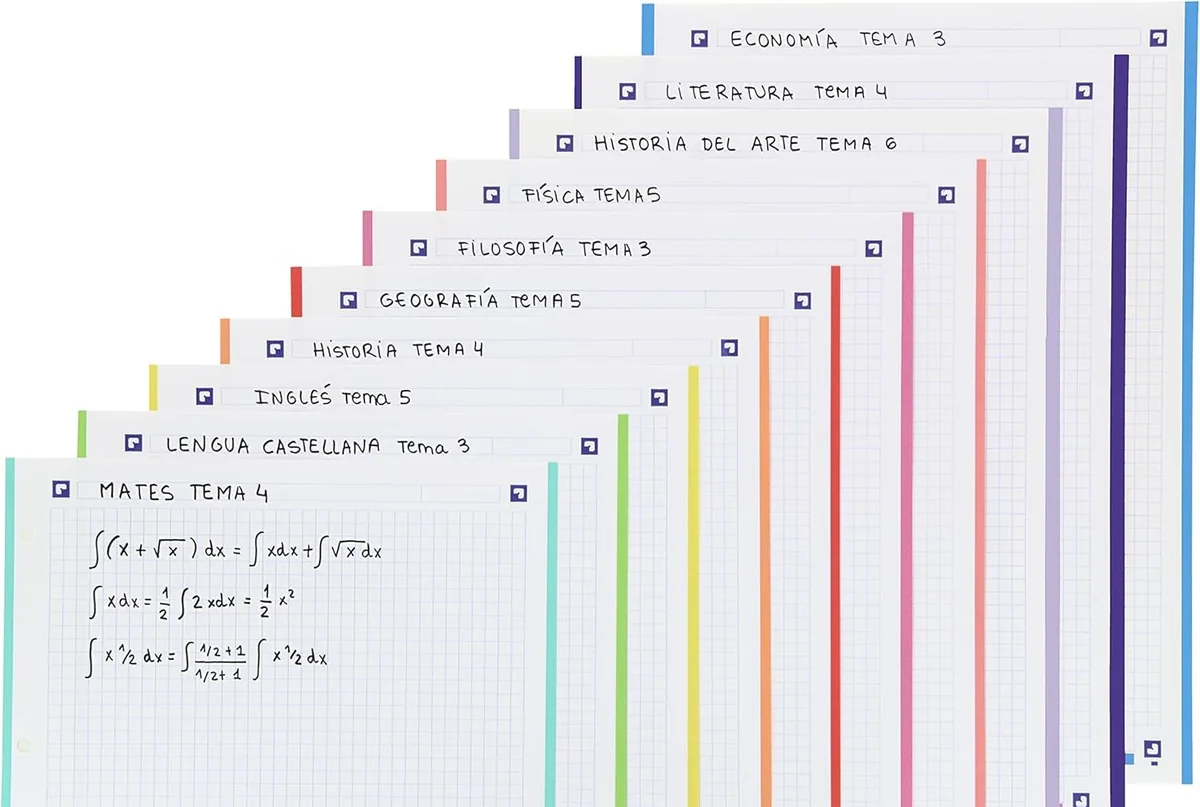 ECONOMÍA TEMA 3
LITERATURA TEMA 4
HISTORIA DEL ARTE TEMA 6
FÍSICA TEMA 5
FILOSOFÍA TEMA 3
GEOGRAFÍA TEMA 5
HISTORIA TEMA 4
INGLÉS Tema 5
LENGUA CASTELLANA Tema 3
MATES TEMA 4
∫(x + √x) dx = ∫xdx + ∫√x dx
∫ x dx = 1/2 ∫ 2 xdx = 1/2 x²
∫ x^1/2 dx = ∫ (1/2 + 1)/(1/2 + 1) ∫ x^1/2 dx